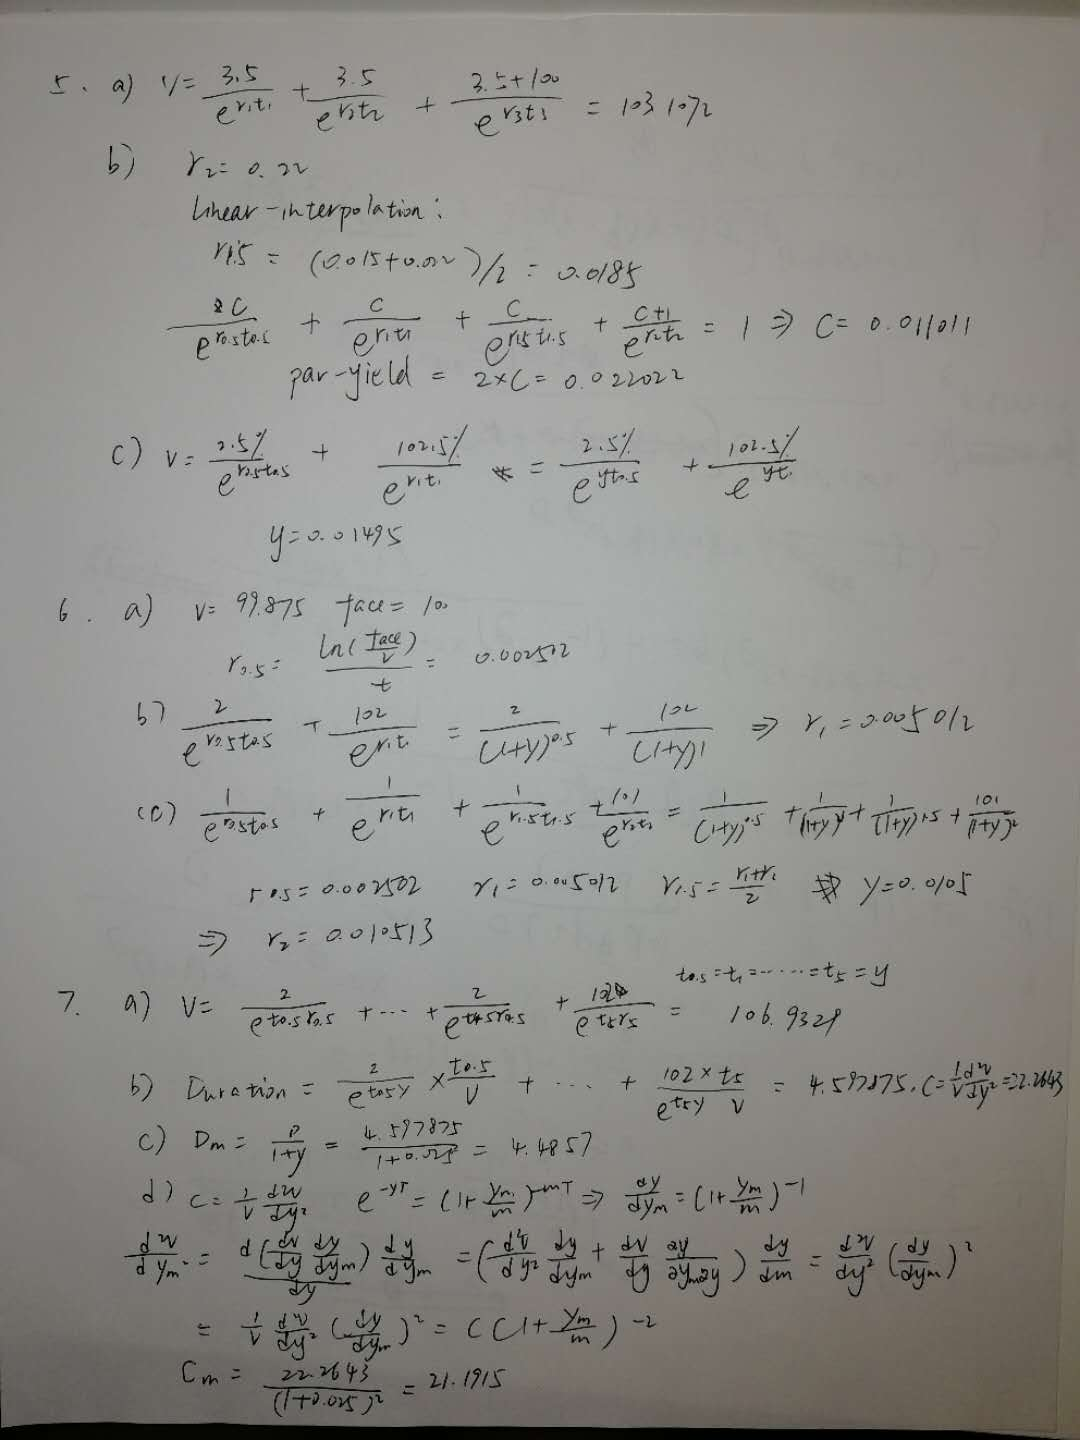 5. a) V = 3.5/e^{r₁t₁} + 3.5/e^{r₂t₂} + (3.5+100)/e^{r₃t₃} = 103.1072
b) r₂ = 0.22
linear-interpolation:
r1.5 = (0.015+0.022)/2 = 0.0185
C/e^{r0.5t0.5} + C/e^{r₁t₁} + C/e^{r1.5t1.5} + (C+1)/e^{r₂t₂} = 1 ⇒ C = 0.011011
par-yield = 2×C = 0.022022
c) V = 2.5%/e^{r0.5t0.5} + 102.5%/e^{r₁t₁} = 2.5%/e^{yt0.5} + 102.5%/e^{yt₁}
y = 0.01495
6. a) V = 99.875 face = 100
r0.5 = ln(face/V)/t = 0.002502
b) 2/e^{r0.5t0.5} + 102/e^{r₁t₁} = 2/(1+y)^{0.5} + 102/(1+y)1 ⇒ r₁ = 0.005012
(c) 1/e^{r0.5t0.5} + 1/e^{r₁t₁} + 1/e^{r1.5t1.5} + 101/e^{r₂t₂} = 1/(1+y)^{0.5} + 1/(1+y) + 1/(1+y)^{1.5} + 101/(1+y)²
r0.5 = 0.002502 r₁ = 0.005012 r1.5 = (r₁+r₂)/2 y = 0.0105
⇒ r₂ = 0.010513
t0.5 = t₁ = ······ = t5 = y
7. a) V = 2/e^{t0.5r0.5} + ··· + 2/e^{t4.5r4.5} + 102/e^{t5r5} = 106.9329
b) Duration = 2/e^{t0.5y} × t0.5/V + ··· + (102×t5)/(e^{t5y} V) = 4.597875, C = 1/V d²V/dy² = 22.2643
c) Dm = D/(1+y) = 4.597875/(1+0.025) = 4.4857
d) C = 1/V d²V/dy² e^{-yT} = (1+ym/m)^{-mT} ⇒ dy/dym = (1+ym/m)^{-1}
d²V/dym² = d(dV/dy dy/dym)/dy dy/dym = (d²V/dy² dy/dym + dV/dy ∂y/∂ym∂y) dy/dm = d²V/dy² (dy/dym)²
= 1/V d²V/dy² (dy/dym)² = C(1+ym/m)^{-2}
Cm = 22.2643/(1+0.025)² = 21.1915